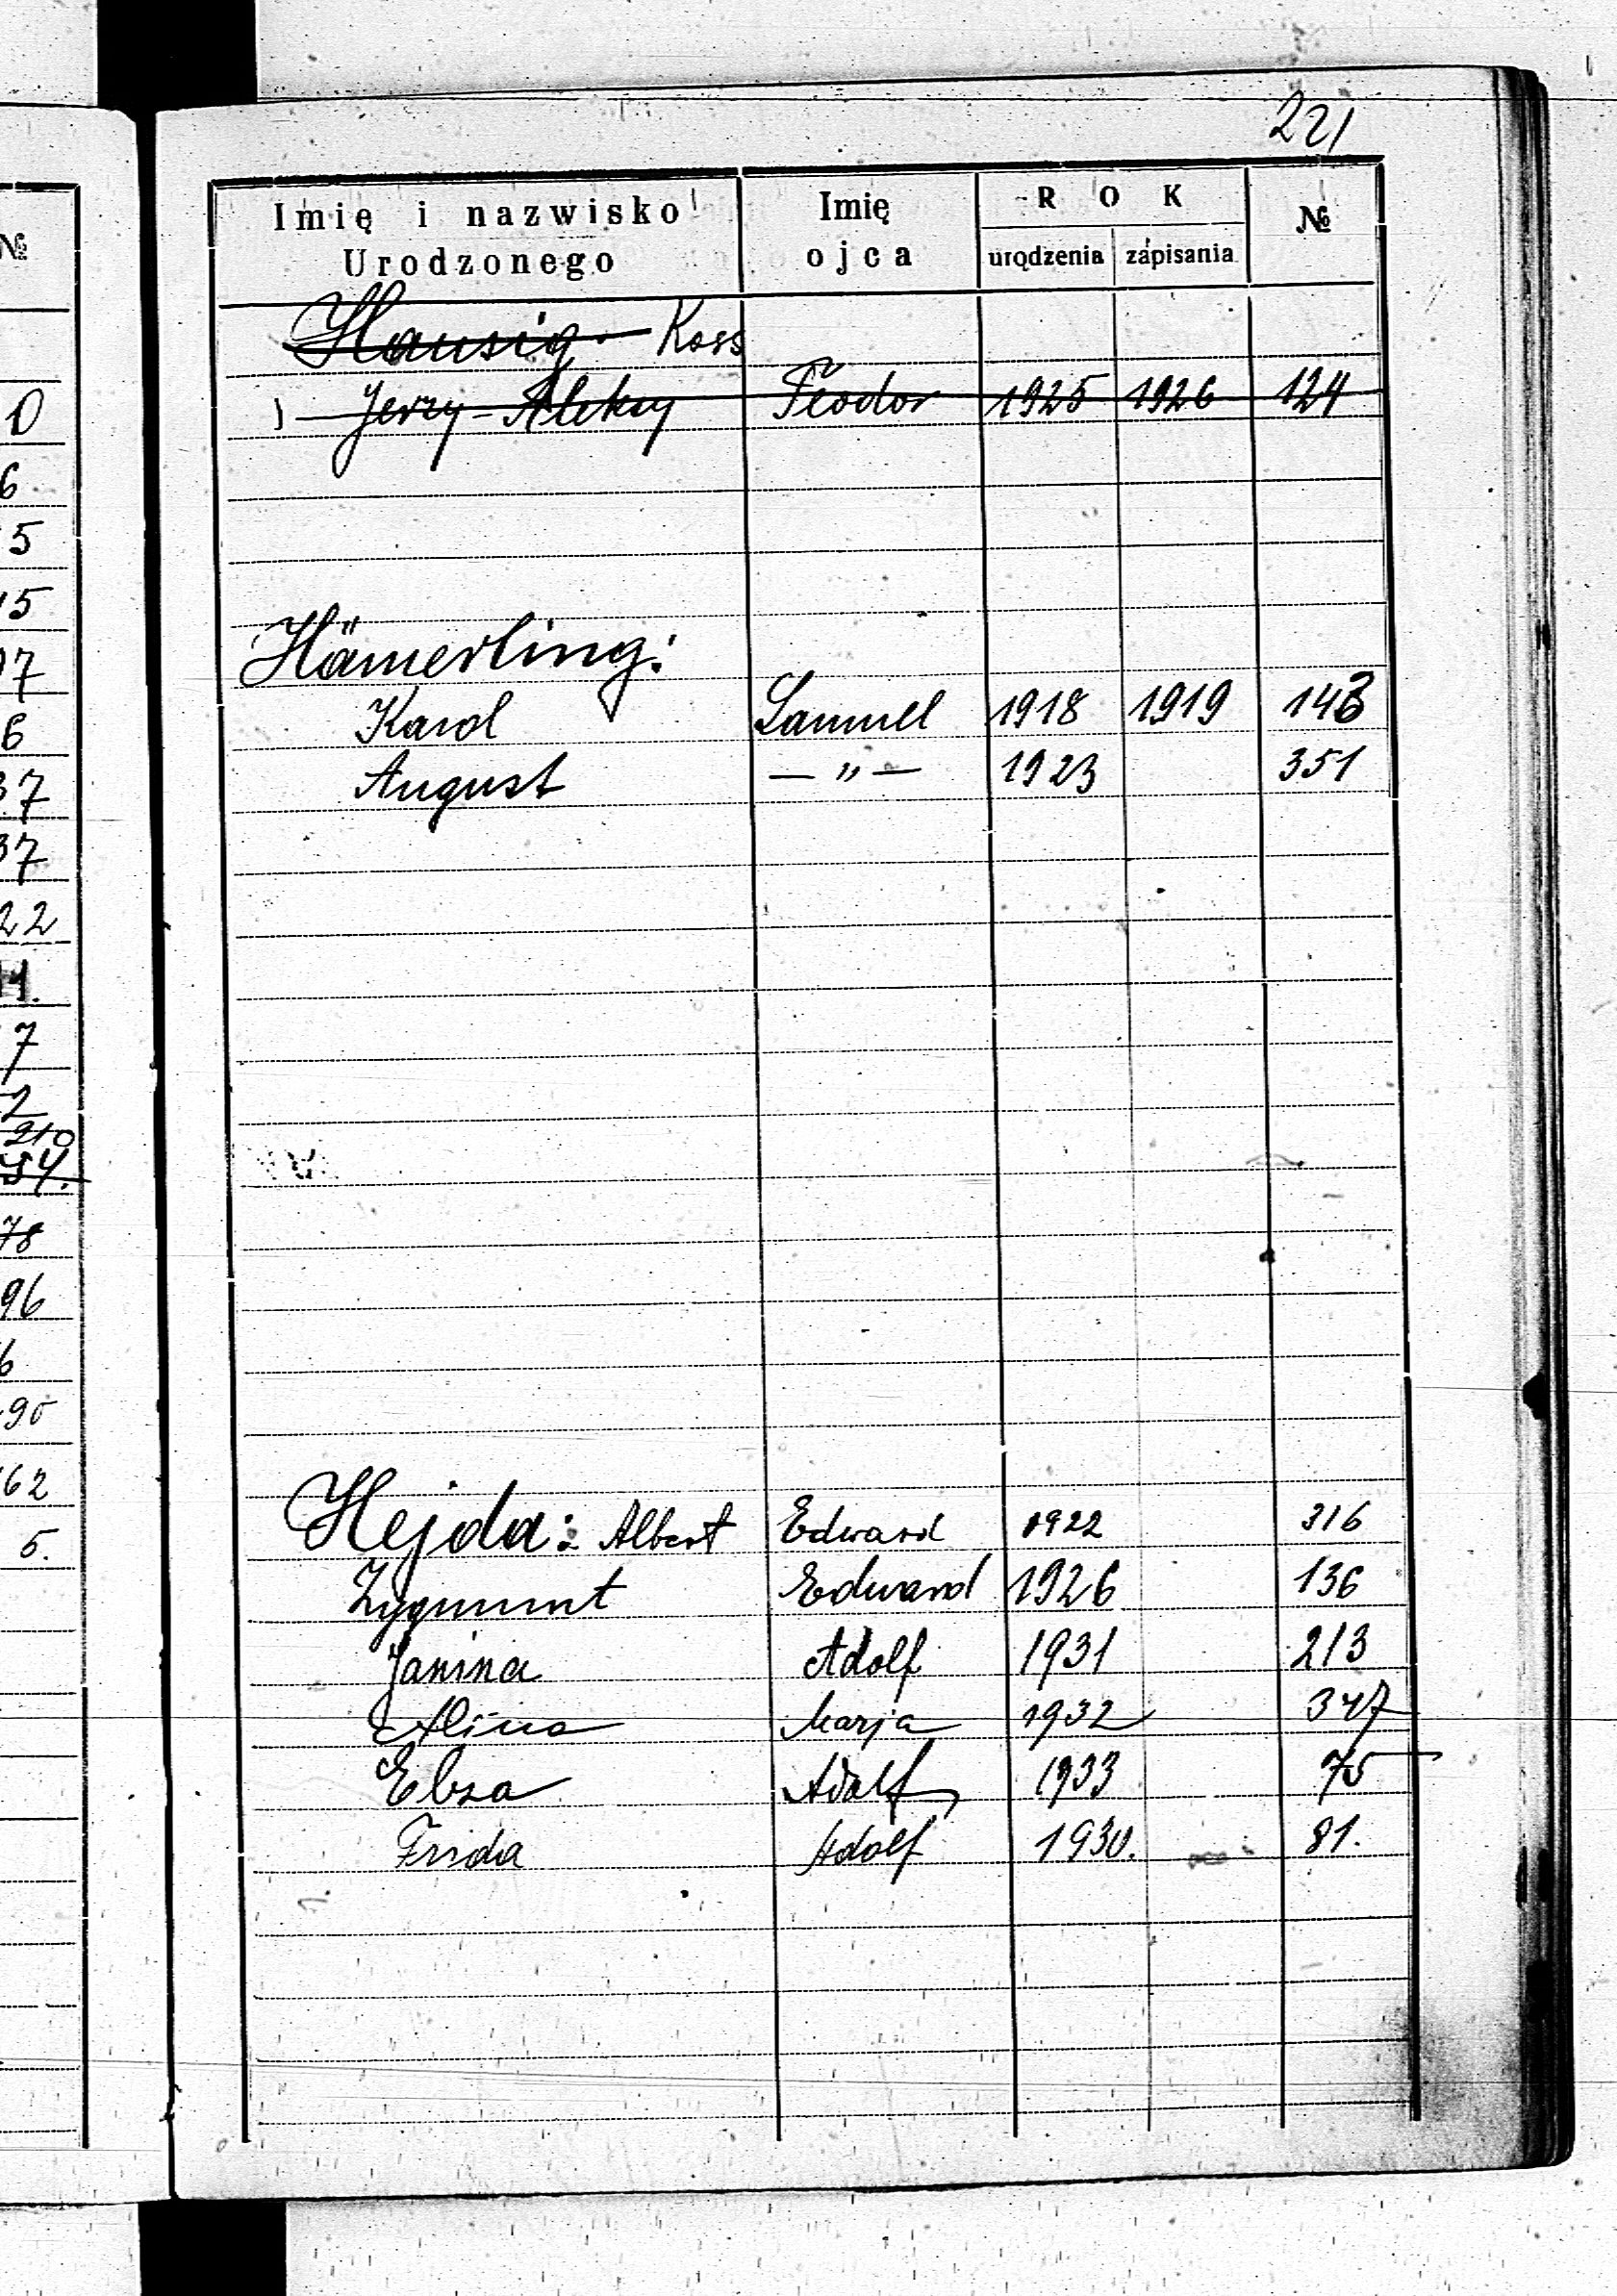 221
Imię i nazwisko Urodzonego Imię ojca ROK urodzenia zapisania №
Hausig Koss
Jerzy-Aleksy Teodor 1925 1926 124
Hämerling:
Karol Samuel 1918 1919 143
August — " — 1923 351
Hejda: Albert Edward 1922 316
Zygmunt Edward 1926 136
Janina Adolf 1931 213
Alina Marja 1932 347
Elza Adolf 1933 75
Frida Adolf 1930. 81.
№
0
6
5
15
7
6
37
37
22
11.
7
2
210
54.
78
96
6
90
62
5.